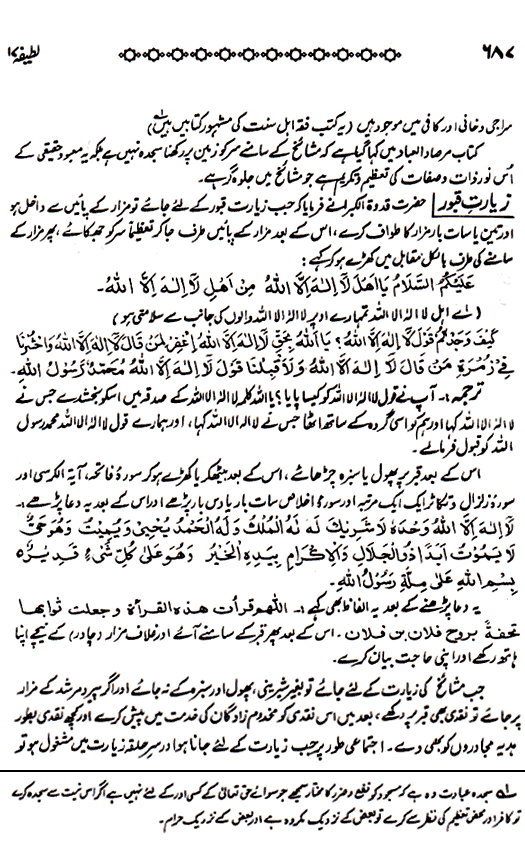 ۶۸۷ لطیفہ ۱۷
سراجی و خانی اور کافی میں موجود ہیں (یہ کتب فقہ اہل سنت کی مشہور کتابیں ہیں)
کتاب مرصاد العباد میں کہا گیا ہے کہ مشائخ کے سامنے سر کو زمین پر رکھنا سجدہ نہیں ہے بلکہ یہ معبود حقیقی کے
اُس نور ذات و صفات کی تعظیم و تکریم ہے جو مشائخ میں جلوہ گر ہے۔
زیارت قبور حضرت قدوۃ الکبرا نے فرمایا کہ جب زیارت قبور کے لئے جائے تو مزار کے پائیں سے داخل ہو
اور تین یا سات بار مزار کا طواف کرے، اس کے بعد مزار کے پائیں طرف جا کر تعظیماً سر کو جھکائے، پھر مزار کے
سامنے کی طرف بالکل مقابل میں کھڑے ہو کر کہے:
عَلَیْکُمُ السَّلَامُ یَا اَھْلَ لَا اِلٰہَ اِلَّا اللہُ مِنْ اَھْلِ لَا اِلٰہَ اِلَّا اللہُ۔
(اے اہل لا الہ الا اللہ تمہارے اوپر لا الہ الا اللہ والوں کی جانب سے سلامتی ہو)
کَیْفَ وَجَدْتُّمْ قَوْلَ لَا اِلٰہَ اِلَّا اللہُ؟ یَا اَللہُ بِحَقِّ لَا اِلٰہَ اِلَّا اللہُ اِغْفِرْ لِمَنْ قَالَ لَا اِلٰہَ اِلَّا اللہُ وَاحْشُرْنَا
فِیْ زُمْرَۃِ مَنْ قَالَ لَا اِلٰہَ اِلَّا اللہُ وَلَا قَبِلْنَا قَوْلَ لَا اِلٰہَ اِلَّا اللہُ مُحَمَّدٌ رَّسُوْلُ اللہِ۔
ترجمہ:۔ آپ نے قول لا الہ الا اللہ کو کیسا پایا؟ یا اللہ کلمہ لا الہ الا اللہ کے صدقہ میں اسکو بخشدے جس نے
لا الہ الا اللہ کہا اور ہم کو اسی گروہ کے ساتھ اٹھا جس نے لا الہ الا اللہ کہا، اور ہمارے قول لا الہ الا اللہ محمد رسول
اللہ کو قبول فرمالے۔
اس کے بعد قبر پر پھول یا سبزہ چڑھائے، اس کے بعد بیٹھ کر یا کھڑے ہو کر سورۂ فاتحہ، آیۃ الکرسی اور
سورۂ زلزال و تکاثر ایک ایک مرتبہ اور سورۂ اخلاص سات بار یا دس بار پڑھے اور اس کے بعد یہ دعا پڑھے:۔
لَا اِلٰہَ اِلَّا اللہُ وَحْدَہٗ لَا شَرِیْکَ لَہٗ لَہُ الْمُلْکُ وَلَہُ الْحَمْدُ یُحْیِیْ وَیُمِیْتُ وَھُوَ حَیٌّ
لَا یَمُوْتُ اَبَدًا ذُوالْجَلَالِ وَالْاِکْرَامِ بِیَدِہِ الْخَیْرُ وَھُوَ عَلٰی کُلِّ شَیْءٍ قَدِیْرٌ
بِسْمِ اللہِ عَلٰی مِلَّۃِ رَسُوْلِ اللہِ۔
یہ دعا پڑھنے کے بعد یہ الفاظ بھی کہے:۔ اللھم قرأت ھذہ القرأۃ و جعلت ثوابھا
تحفۃً بروح فلان بن فلان۔ اس کے بعد پھر قبر کے سامنے آئے اور غلاف مزار (چادر) کے نیچے اپنا
ہاتھ رکھے اور اپنی حاجت بیان کرے۔
جب مشائخ کی زیارت کے لئے جائے تو بغیر شیرینی، پھول اور سبزہ کے نہ جائے اور اگر پیر و مرشد کے مزار
پر جائے تو نقدی بھی قبر پر رکھے، بعد میں اس نقدی کو مخدوم زادگان کی خدمت میں پیش کرے اور کچھ نقدی بطور
ہدیہ مجاوروں کو بھی دے۔ اجتماعی طور پر جب زیارت کے لئے جانا ہوا ور سرحلقہ زیارت میں مشغول ہو تو
لہ سجدہ عبادت وہ ہے کہ مسجود کو نفع و ضرر کا مختار سمجھے جو سوائے حق تعالیٰ کے کسی اور کے لئے نہیں ہے اگر اس نیت سے سجدہ کرے
تو کافر اور محض تعظیم کی نظر سے کرے تو بعض کے نزدیک مکروہ ہے اور بعض کے نزدیک حرام۔